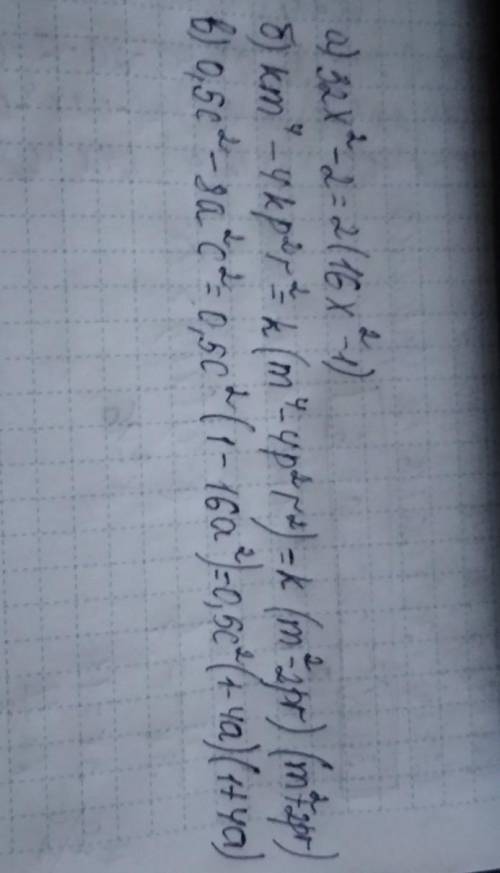 а) 32x² - 2 = 2(16x² - 1)
б) km⁴ - 4kp²r² = k(m⁴ - 4p²r²) = k(m² - 2pr)(m² + 2pr)
в) 0,5c² - 8a²c² = 0,5c²(1 - 16a²) = 0,5c²(1 + 4a)(1 + 4a)